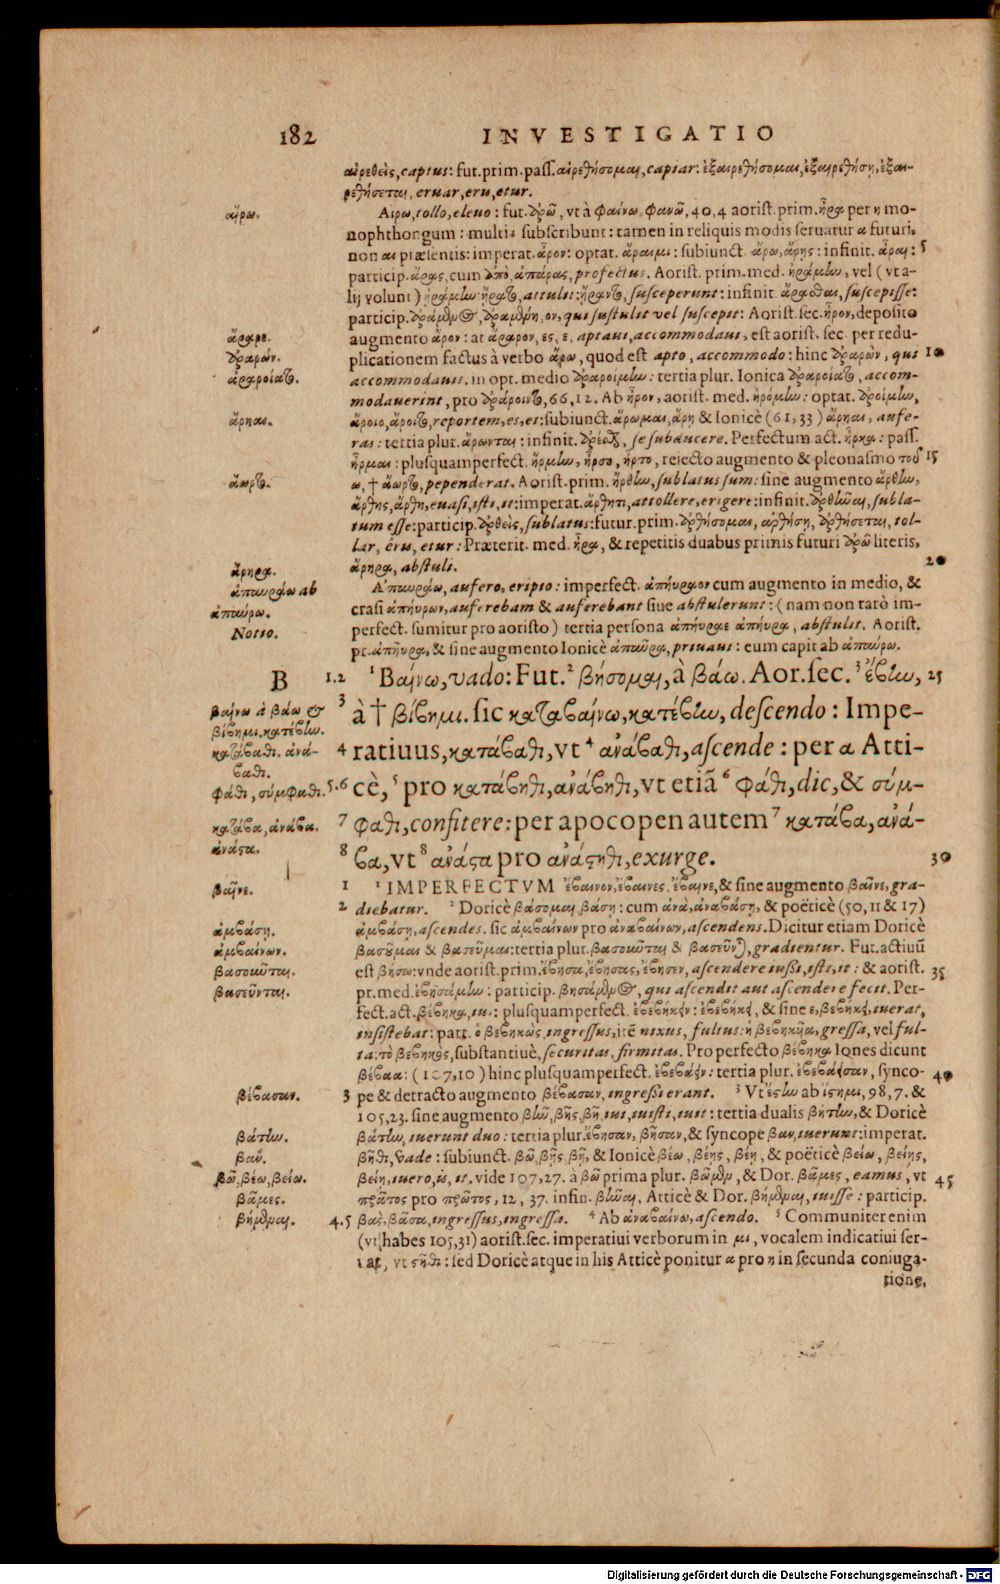 182 INVESTIGATIO
αἱρεθεὶς, captus: fut. prim. pass. αἱρεθήσομαι, capiar: ἐξαιρεθήσομαι, ἐξαιρεθήση, ἐξαι-
ρεθήσεται, eruar, eru, etur.
αἴρω. Αιρω, tollo, eleuo: fut. ἀρῶ, vt à φαίνω, φανῶ, 40, 4 aorist. prim. ἦρα per η mo-
nophthongum: multi subscribunt: tamen in reliquis modis seruatur α futuri,
non αι præsentis: imperat. ἆρον: optat. ἄραιμι: subiunct. ἄρω, ἄρης: infinit. ἆραι: 5
particip. ἄρας, cum ἀπὸ, ἀπάρας, profectus. Aorist. prim. med. ἠράμην, vel (vt a-
lij volunt) ᾐράμην: ἤρατο, attulit: ἤραντο, susceperunt: infinit. ἄρασθαι, suscepisse:
particip. ἀράμενος, ἀραμένη, ον, qui sustulit vel suscepit: Aorist. sec. ἦρον, deposito
ἄραρε. augmento ἆρον: at ἄραρον, ες, ε, aptaui, accommodaui, est aorist. sec. per redu-
ἀραρών. plicationem factus à verbo ἄρω, quod est apto, accommodo: hinc ἀραρὼν, qui 10
ἀραροίατο. accommodauit. in opt. medio ἀραροίμην: tertia plur. Ionica ἀραροίατο, accom-
modauerint, pro ἀράροιντο, 66, 12. Ab ἦρον, aorist. med. ἠρόμην: optat. ἀροίμην,
ἄρηαι. ἄροιο, ἄροιτο, reportem, es, et: subiunct. ἄρωμαι, ἄρη & Ionicè (61, 33) ἄρηαι, aufe-
ras: tertia plur. ἄρωνται: infinit. ἀρέσθαι, se subducere. Perfectum act. ἦρκα: pass.
ἦρμαι: plusquamperfect. ἤρμην, ἦρσο, ἦρτο, reiecto augmento & pleonasmo τοῦ 15
ἄωρτο. ω, † ἄωρτο, pependerat. Aorist. prim. ἤρθην, sublatus sum: sine augmento ἄρθην,
ἄρθης, ἄρθη, euasi, isti, it: imperat. ἄρθητι, attollere, erigere: infinit. ἀρθῆναι, subla-
tum esse: particip. ἀρθεὶς, sublatus: futur. prim. ἀρθήσομαι, ἀρθήση, ἀρθήσεται, tol-
lar, êru, etur: Præterit. med. ἦρα, & repetitis duabus primis futuri ἀρῶ literis,
ἄρηρα. ἄρηρα, abstuli. 20
ἀπαυράω ab Α᾿παυράω, aufero, eripio: imperfect. ἀπήυραον cum augmento in medio, &
ἀπαύρω. crasi ἀπήυρων, auferebam & auferebant siue abstulerunt: (nam non rarò im-
Notio. perfect. sumitur pro aoristo) tertia persona ἀπήυραε ἀπήυρα, abstulit. Aorist.
pr. ἀπῆυρα, & sine augmento Ionicè ἀπαῦρα, priuaui: eum capit ab ἀπαύρω.
B 1.2 ¹ Βαίνω, vado: Fut. ² βήσομαι, à βάω. Aor. sec. ³ ἔβην, 25
βαίνω à βάω & 3 à † βίβημι. sic καταβαίνω, κατέβην, descendo: Impe-
βίβημι, κατέβην.
κατάβαθι. ἀνά- 4 ratiuus, κατάβαθι, vt ⁴ ἀνάβαθι, ascende: per α Atti-
βαθι.
φάθι, σύμφαθι. 5.6 cè, ⁵ pro κατάβηθι, ἀνάβηθι, vt etiã ⁶ φάθι, dic, & σύμ-
κατάβα, ἀνάβα. 7 φαθι, confitere: per apocopen autem ⁷ κατάβα, ἀνά-
ἀνάστα. 8 βα, vt ⁸ ἀνάστα pro ἀνάστηθι, exurge. 30
βαῖνε. 1 ¹ IMPERFECTVM ἔβαινον, ἔβαινες, ἔβαινε, & sine augmento βαῖνε, gra-
2 diebatur. ² Doricè βάσομαι, βάση: cum ἀνὰ, ἀναβάση, & poëticè (50, 11 & 17)
ἀμβάση. ἀμβάση, ascendes. sic ἀμβαίνων pro ἀναβαίνων, ascendens. Dicitur etiam Doricè
ἀμβαίνων. βασοῦμαι & βασεῦμαι: tertia plur. βασοῦνται & βασεῦνται, gradientur. Fut. actiuũ
βασοῦνται. est βήσω: vnde aorist. prim. ἔβησα, ἔβησας, ἔβησεν, ascendere iussi, isti, it: & aorist. 35
βασεῦνται. pr. med. ἐβησάμην: particip. βησάμενος, qui ascendit aut ascendere fecit. Per-
fect. act. βέβηκα, iui: plusquamperfect. ἐβεβήκειν: ἐβεβήκει, & sine ε, βεβήκει, iuerat,
insistebat: part. ὁ βεβηκὼς, ingressus, itẽ nixus, fultus: ἡ βεβηκῦια, gressa, vel ful-
ta: τὸ βεβηκὸς, substantiuè, securitas, firmitas. Pro perfecto βέβηκα Iones dicunt
βέβαα: (107, 10) hinc plusquamperfect. ἐβεβάειν: tertia plur. ἐβεβάεισαν, synco- 40
βέβασαν. 3 pe & detracto augmento βέβασαν, ingressi erant. ³ Vt ἔστην ab ἵστημι, 98, 7. &
105, 23. sine augmento βῆν, βῆς, βῆ, iui, iuisti, iuit: tertia dualis βήτην, & Doricè
βάτην. βάτην, iuerunt duo: tertia plur. ἔβησαν, βῆσαν, & syncope βαν, iuerunt: imperat.
βαν. βῆθι, vade: subiunct. βῶ, βῆς, βῆ, & Ionicè βέω, βέης, βέη, & poëticè βείω, βείης,
βῶ, βέω, βείω. βείη, iuero, is, it. vide 107, 27. à βῶ prima plur. βῶμεν, & Dor. βᾶμες, eamus, vt 45
βᾶμες. πρᾶτος pro πρῶτος, 12, 37. infin. βῆναι, Atticè & Dor. βήμεναι, iuisse: particip.
βήμεναι. 4.5 βὰς, βᾶσα, ingressus, ingressa. ⁴ Ab ἀναβαίνω, ascendo. ⁵ Communiter enim
(vt habes 105, 31) aorist. sec. imperatiui verborum in μι, vocalem indicatiui ser-
uat, vt στῆθι: sed Doricè atque in his Atticè ponitur α pro η in secunda coniuga-
tione,
Digitalisierung gefördert durch die Deutsche Forschungsgemeinschaft - DFG